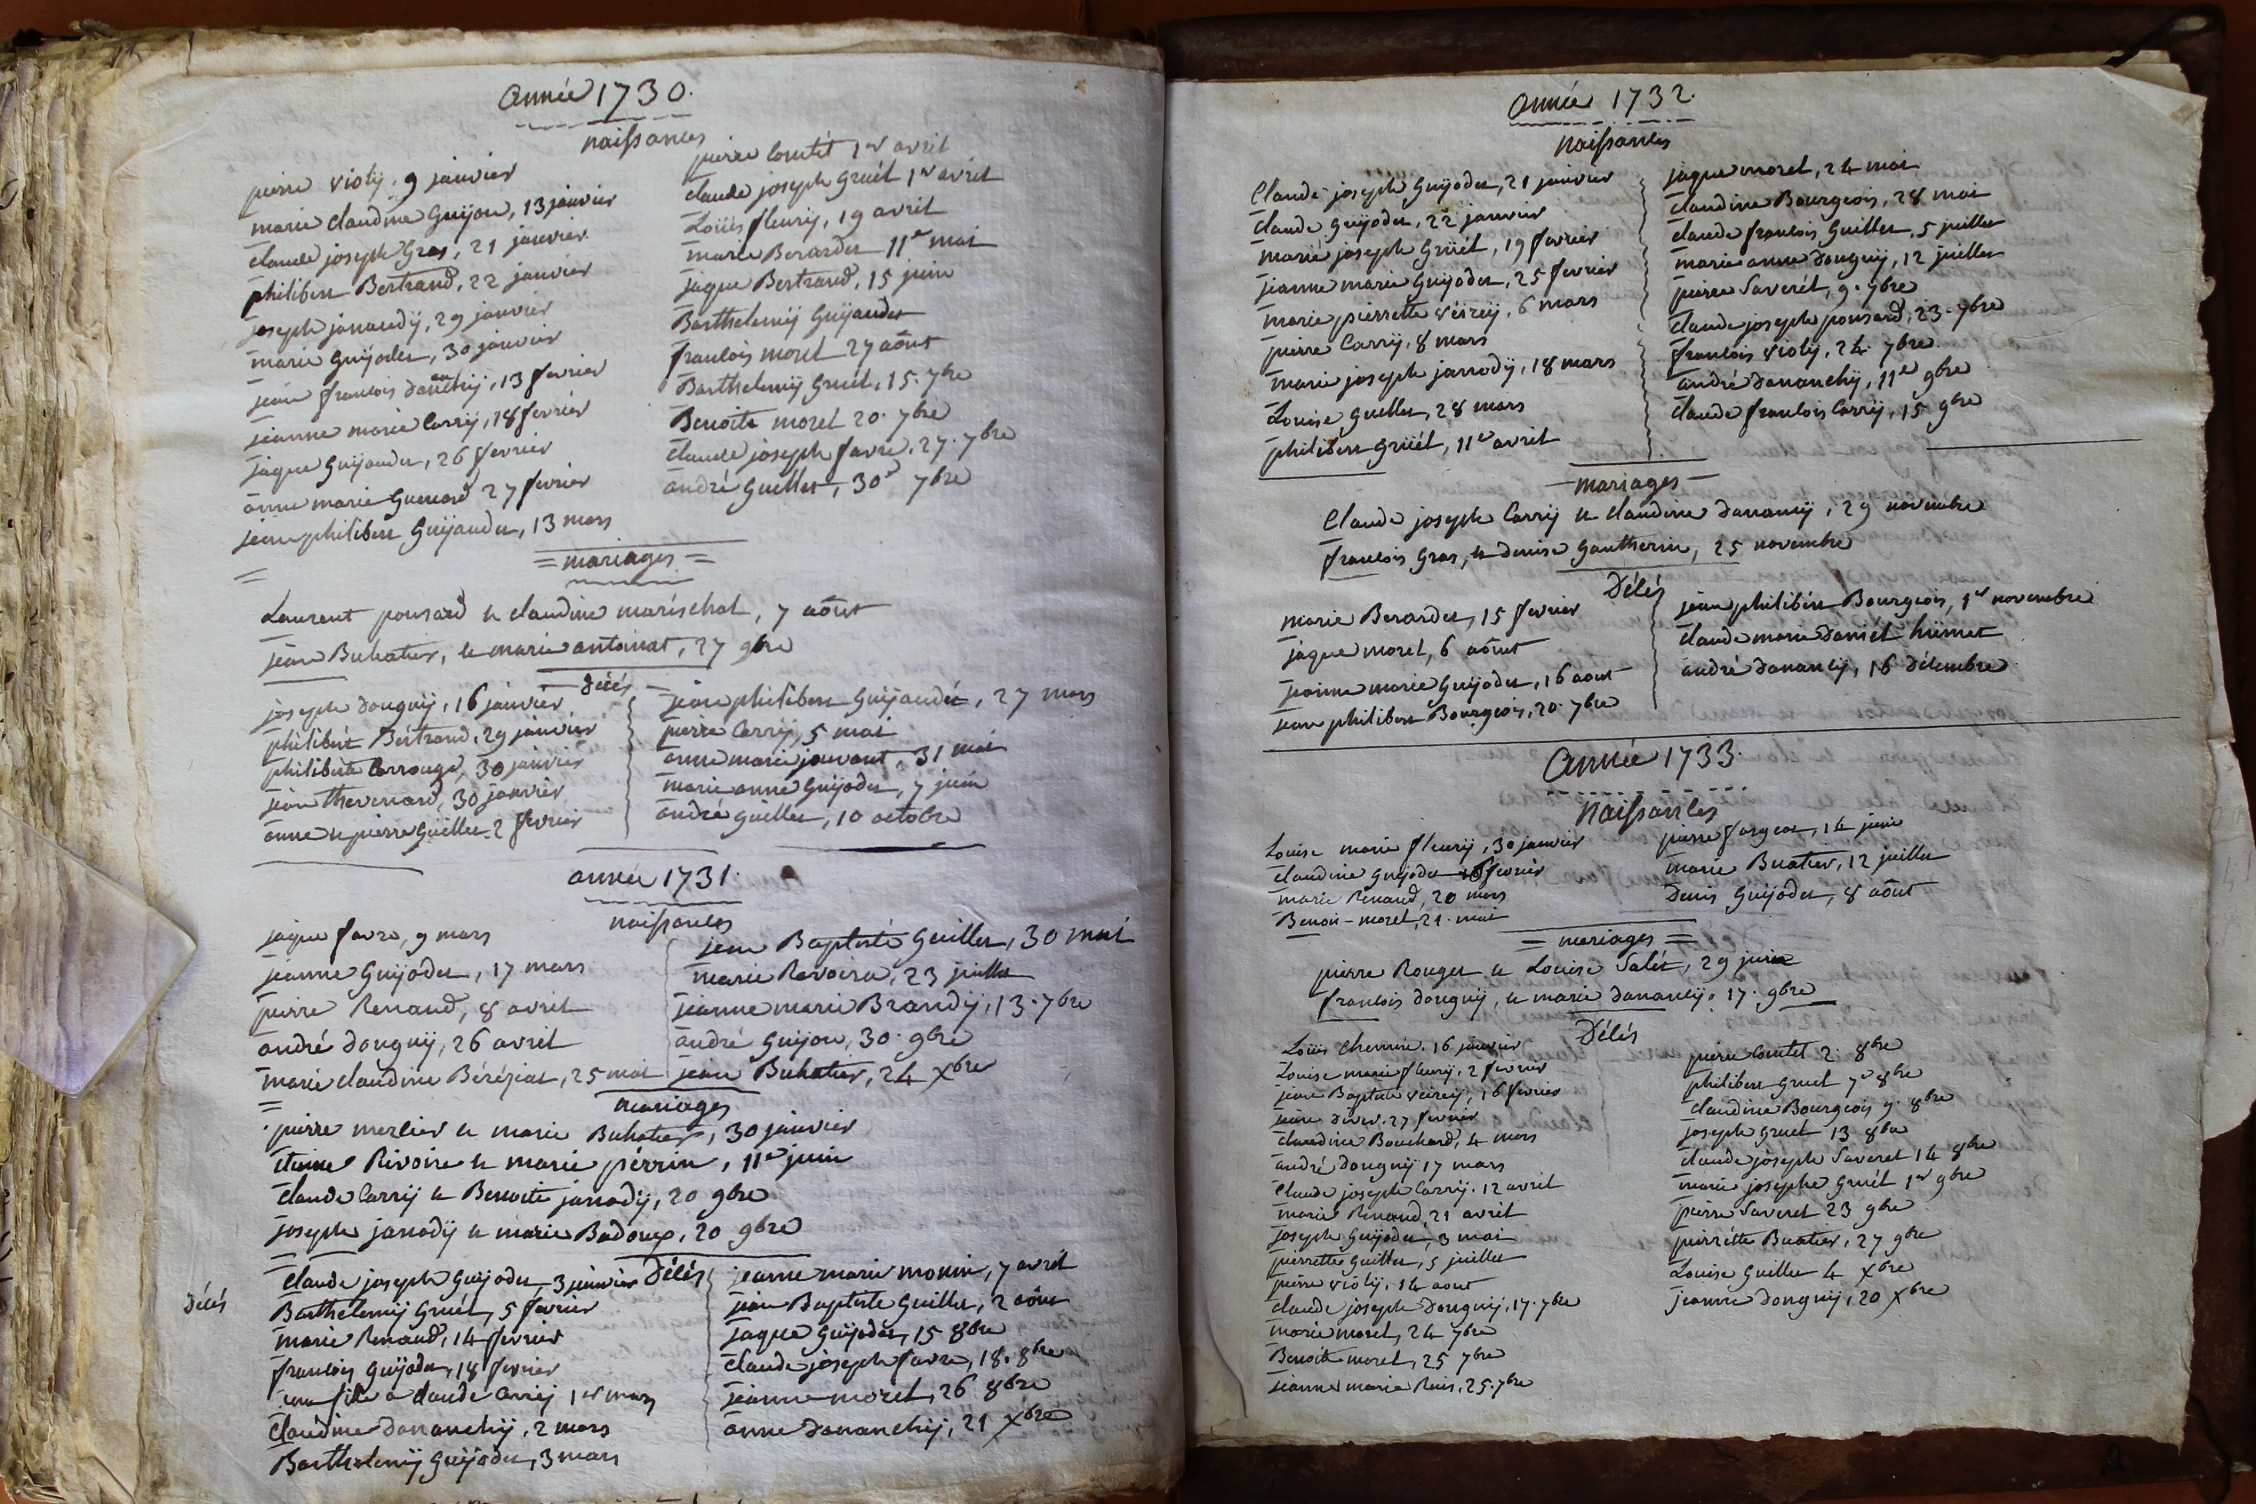 année 1730.
naissances
pierre violy, 9 janvier
marie claudine Guÿon, 13 janvier
claude joseph Gras, 21 janvier
philibert Bertrand, 22 janvier
joseph janaudÿ, 29 janvier
marie Guÿodet, 30 janvier
jean francois dananchÿ, 13 fevrier
jeanne marie Carrÿ, 18 fevrier
jaque Guÿaudet, 26 fevrier
anne marie Guenard 27 fevrier
jean philibert Guÿaudet, 13 mars
pierre Comtét 1er avril
claude joseph Gruél 1er avril
Loüis fleurÿ, 19 avril
marie Berardet 11e mai
jaque Bertrand, 15 juin
Barthelemÿ Guÿaudet
francois morel 27 août
Barthelemÿ Gruél, 15. 7bre
Benoite morel 20. 7bre
claude joseph favre, 27. 7bre
andré Guillet, 30 7bre
mariages
Laurent ponsard et claudine maréschal, 7 août
jean Buhatier, et marie antoinat, 27 9bre
décés
joseph donguÿ, 16 janvier
philibért Bértrand, 29 janvier
philiberte Carrouge, 30 janvier
jean thevenard, 30 janvier
anne et pierre Guillet 2 fevrier
jean philibert Guÿaudet, 27 mars
pierre Carrÿ, 5 mai
anne marie jouvant, 31 mai
marie anne Guÿodet, 7 juin
andré Guillet, 10 octobre
année 1731.
naissances
jaque favre, 9 mars
jeanne Guÿodet, 17 mars
pierre Renaud, 8 avril
andré donguÿ, 26 avril
marie claudine Béréziat, 25 mai
jean Baptiste Guillet, 30 mai
marie Revoire, 23 juillet
jeanne marie Brandÿ, 13. 7bre
andré Guÿon, 30. 9bre
jean Buhatier, 24 Xbre
mariages
pierre merlier et marie Buhatier, 30 janvier
étienne Rivoire et marie pérrin, 11e juin
claude Carrÿ et Benoite janodÿ, 20 9bre
joseph janodÿ et marie Badoux, 20 9bre
Décés
Décés
claude joseph Guÿodet 3 janvier
Barthelemÿ Gruél, 5 fevrier
marie Renaud, 14 fevrier
francois Guÿodet, 18 fevrier
une fille a claude Carrÿ 1er mars
claudine dananchÿ, 2 mars
Barthelemÿ Guÿodet, 3 mars
jeanne marie monin, 7 avril
jean Baptiste Guillet, 2 août
jaque Guÿodet, 15 8bre
claude joseph favre, 18. 8bre
jeanne morel, 26 8bre
anne dananchÿ, 21 Xbre
année 1732.
naissances
Claude joseph Guÿodet, 21 janvier
claude Guÿodet, 22 janvier
marie joseph Grüél, 19 fevrier
jeanne marie Guÿodet, 25 fevrier
marie pierrette véirÿ, 6 mars
pierre Carrÿ, 8 mars
marie joseph janodÿ, 18 mars
Louise Guillet, 28 mars
philibert Grüél, 11e avril
jaque morel, 24 mai
claudine Bourgeois, 28 mai
claude francois Guillet, 5 juillet
marie anne donguÿ, 12 juillet
pierre Saverét, 9. 7bre
claude joseph ponsard, 23. 7bre
francois violÿ, 24. 7bre
andré dananchÿ, 11e 9bre
claude francois Carrÿ, 15 9bre
mariages
Claude joseph Carrÿ et claudine danancÿ, 29 novembre
francois Gras, et denise Gautherin, 25 novembre
Décés
marie Berardet, 15 fevrier
jaque morel, 6 août
jeanne marie Guÿodet, 16 aout
jean philibert Bourgeois, 20. 7bre
jean philibért Bourgeois, 1er novembre
claude marie daniél hümet
andré danancÿ, 16 décembre
Année 1733.
Naissances
Louise marie fleurÿ, 30 janvier
claudine Guÿodet 16 fevrier
marie Renaud, 20 mars
Benoit morel, 21. mai
pierre fargeot, 14 juin
marie Buatier, 12 juillet
Denis Guÿodet, 8 août
mariages
pierre Rouget et Louise Salét, 29 juin
francois donguÿ, et marie danancÿ, 17. 9bre
Décés
Loüis Chemin, 16 janvier
Louise marie fleurÿ, 2 fevrier
jean Baptiste véireÿ, 16 fevrier
27 fevrier
claudine Bouchard, 4 mars
andré donguÿ 17 mars
Claude joseph Carrÿ, 12 avril
marie Renaud, 21 avril
joseph Guÿodet, 3 mai
pierrette Guillet, 5 juillet
pierre violÿ, 14 aout
claude joseph donguÿ, 17. 7bre
marie morel, 24 7bre
Benoite morel, 25 7bre
jeanne marie Ruis, 25. 7bre
pierre Comtet 2. 8bre
philibert Gruel 7e 8bre
claudine Bourgeois 9. 8bre
joseph Gruel 13 8bre
claude joseph Saveret 14 8bre
marie josephe Gruél 1er 9bre
pierre Saveret 23 9bre
pierrétte Buatier, 27 9bre
Louise Guillet 4 Xbre
jeanne donguÿ, 20 Xbre